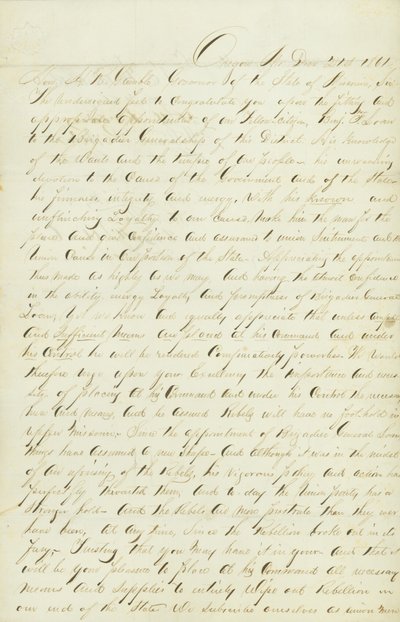 Oregon Mo Decr 21st 1861
Hon. H. R. Gamble Governor of the State of Missouri, Sir
The undersigned feel to congratulate you upon the fitting and
appropriate appointment of our fellow citizen, Benj. F. Loan
to the Brigadier Generalship of this District. His knowledge
of the wants and the temper of our people - his unceasing
devotion to the cause of the Government and of the State
his firmness, integrity and energy. With his known and
unflinching Loyalty to our cause, make him the man for the
place and our confidence and assurance to union sentiment and the
Union Cause in our portion of the State. Appreciating the appointment
thus made as highly as we may and having the utmost confidence
in the ability, energy Loyalty and promptness of Brigadier General
Loan, yet we know and equally appreciate that unless ample
and sufficient means are placed at his command and under
his control he will be rendered comparatively powerless. We would
therefore urge upon your Excellency the importance and neces-
sity of placing at his command and under his control the necessary
men and means, and be assured Rebels will have no foothold in
upper Missouri. Since the appointment of Brigadier General Loan
things have assumed a new shape - and although it was in the midst
of an uprising of the Rebels, his vigorous policy and action has
perfectly thwarted them, and to day the Union party has a
stronger hold - and the Rebels are more prostrate than they ever
have been, at any time, since the Rebellion broke out in its
fury. Trusting that you may have it in your and that it
will be your pleasure to place at his command all necessary
means and supplies to entirely wipe out Rebellion in
our end of the State We subscribe ourselves as union men